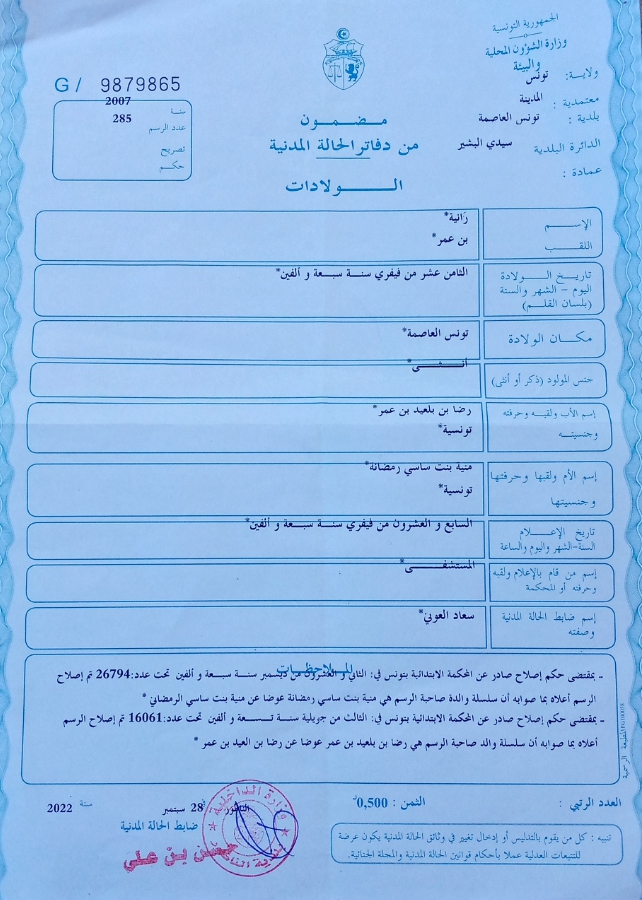 الجمهورية التونسية
وزارة الشؤون المحلية
والبيئة
ولاية: تونس
معتمدية : المدينة
بلدية : تونس العاصمة
الدائرة البلدية سيدي البشير
عمادة :
G/ 9879865
سنة 2007
عدد الرسم 285
تصريح
حكم
مضمون
من دفاتر الحالة المدنية
الولادات
الإسم رانية*
اللقب بن عمر*
تاريخ الولادة الثامن عشر من فيفري سنة سبعة و ألفين*
اليوم - الشهر والسنة
(بلسان القلم)
مكان الولادة تونس العاصمة*
جنس المولود (ذكر أو أنثى) أنثى*
إسم الأب ولقبه وحرفته رضا بن بلعيد بن عمر*
وجنسيته تونسية*
إسم الأم ولقبها وحرفتها منية بنت ساسي رمضانة*
وجنسيتها تونسية*
تاريخ الإعلام السابع و العشرون من فيفري سنة سبعة و ألفين*
السنة-الشهر واليوم والساعة
إسم من قام بالإعلام ولقبه المستشفى*
وحرفته أو المحكمة
إسم ضابط الحالة المدنية سعاد العوني*
وصفته
الملاحظات
ـ بمقتضى حكم إصلاح صادر عن المحكمة الابتدائية بتونس في: الثاني و العشرون من ديسمبر سنة سبعة و ألفين تحت عدد:26794 تم إصلاح
الرسم أعلاه بما صوابه أن سلسلة والدة صاحبة الرسم هي منية بنت ساسي رمضانة عوضا عن منية بنت ساسي الرمضاني *
ـ بمقتضى حكم إصلاح صادر عن المحكمة الابتدائية بتونس في: الثالث من جويلية سنة تسعة و ألفين تحت عدد:16061 تم إصلاح الرسم
أعلاه بما صوابه أن سلسلة والد صاحبة الرسم هي رضا بن بلعيد بن عمر عوضا عن رضا بن العيد بن عمر *
العدد الرتبي : الثمن : 0,500د
28 سبتمبر سنة 2022
ضابط الحالة المدنية
حسن بن علي
وزارة الداخلية
تنبيه : كل من يقوم بالتدليس أو إدخال تغيير في وثائق الحالة المدنية يكون عرضة
للتتبعات العدلية عملا بأحكام قوانين الحالة المدنية والمجلة الجنائية.